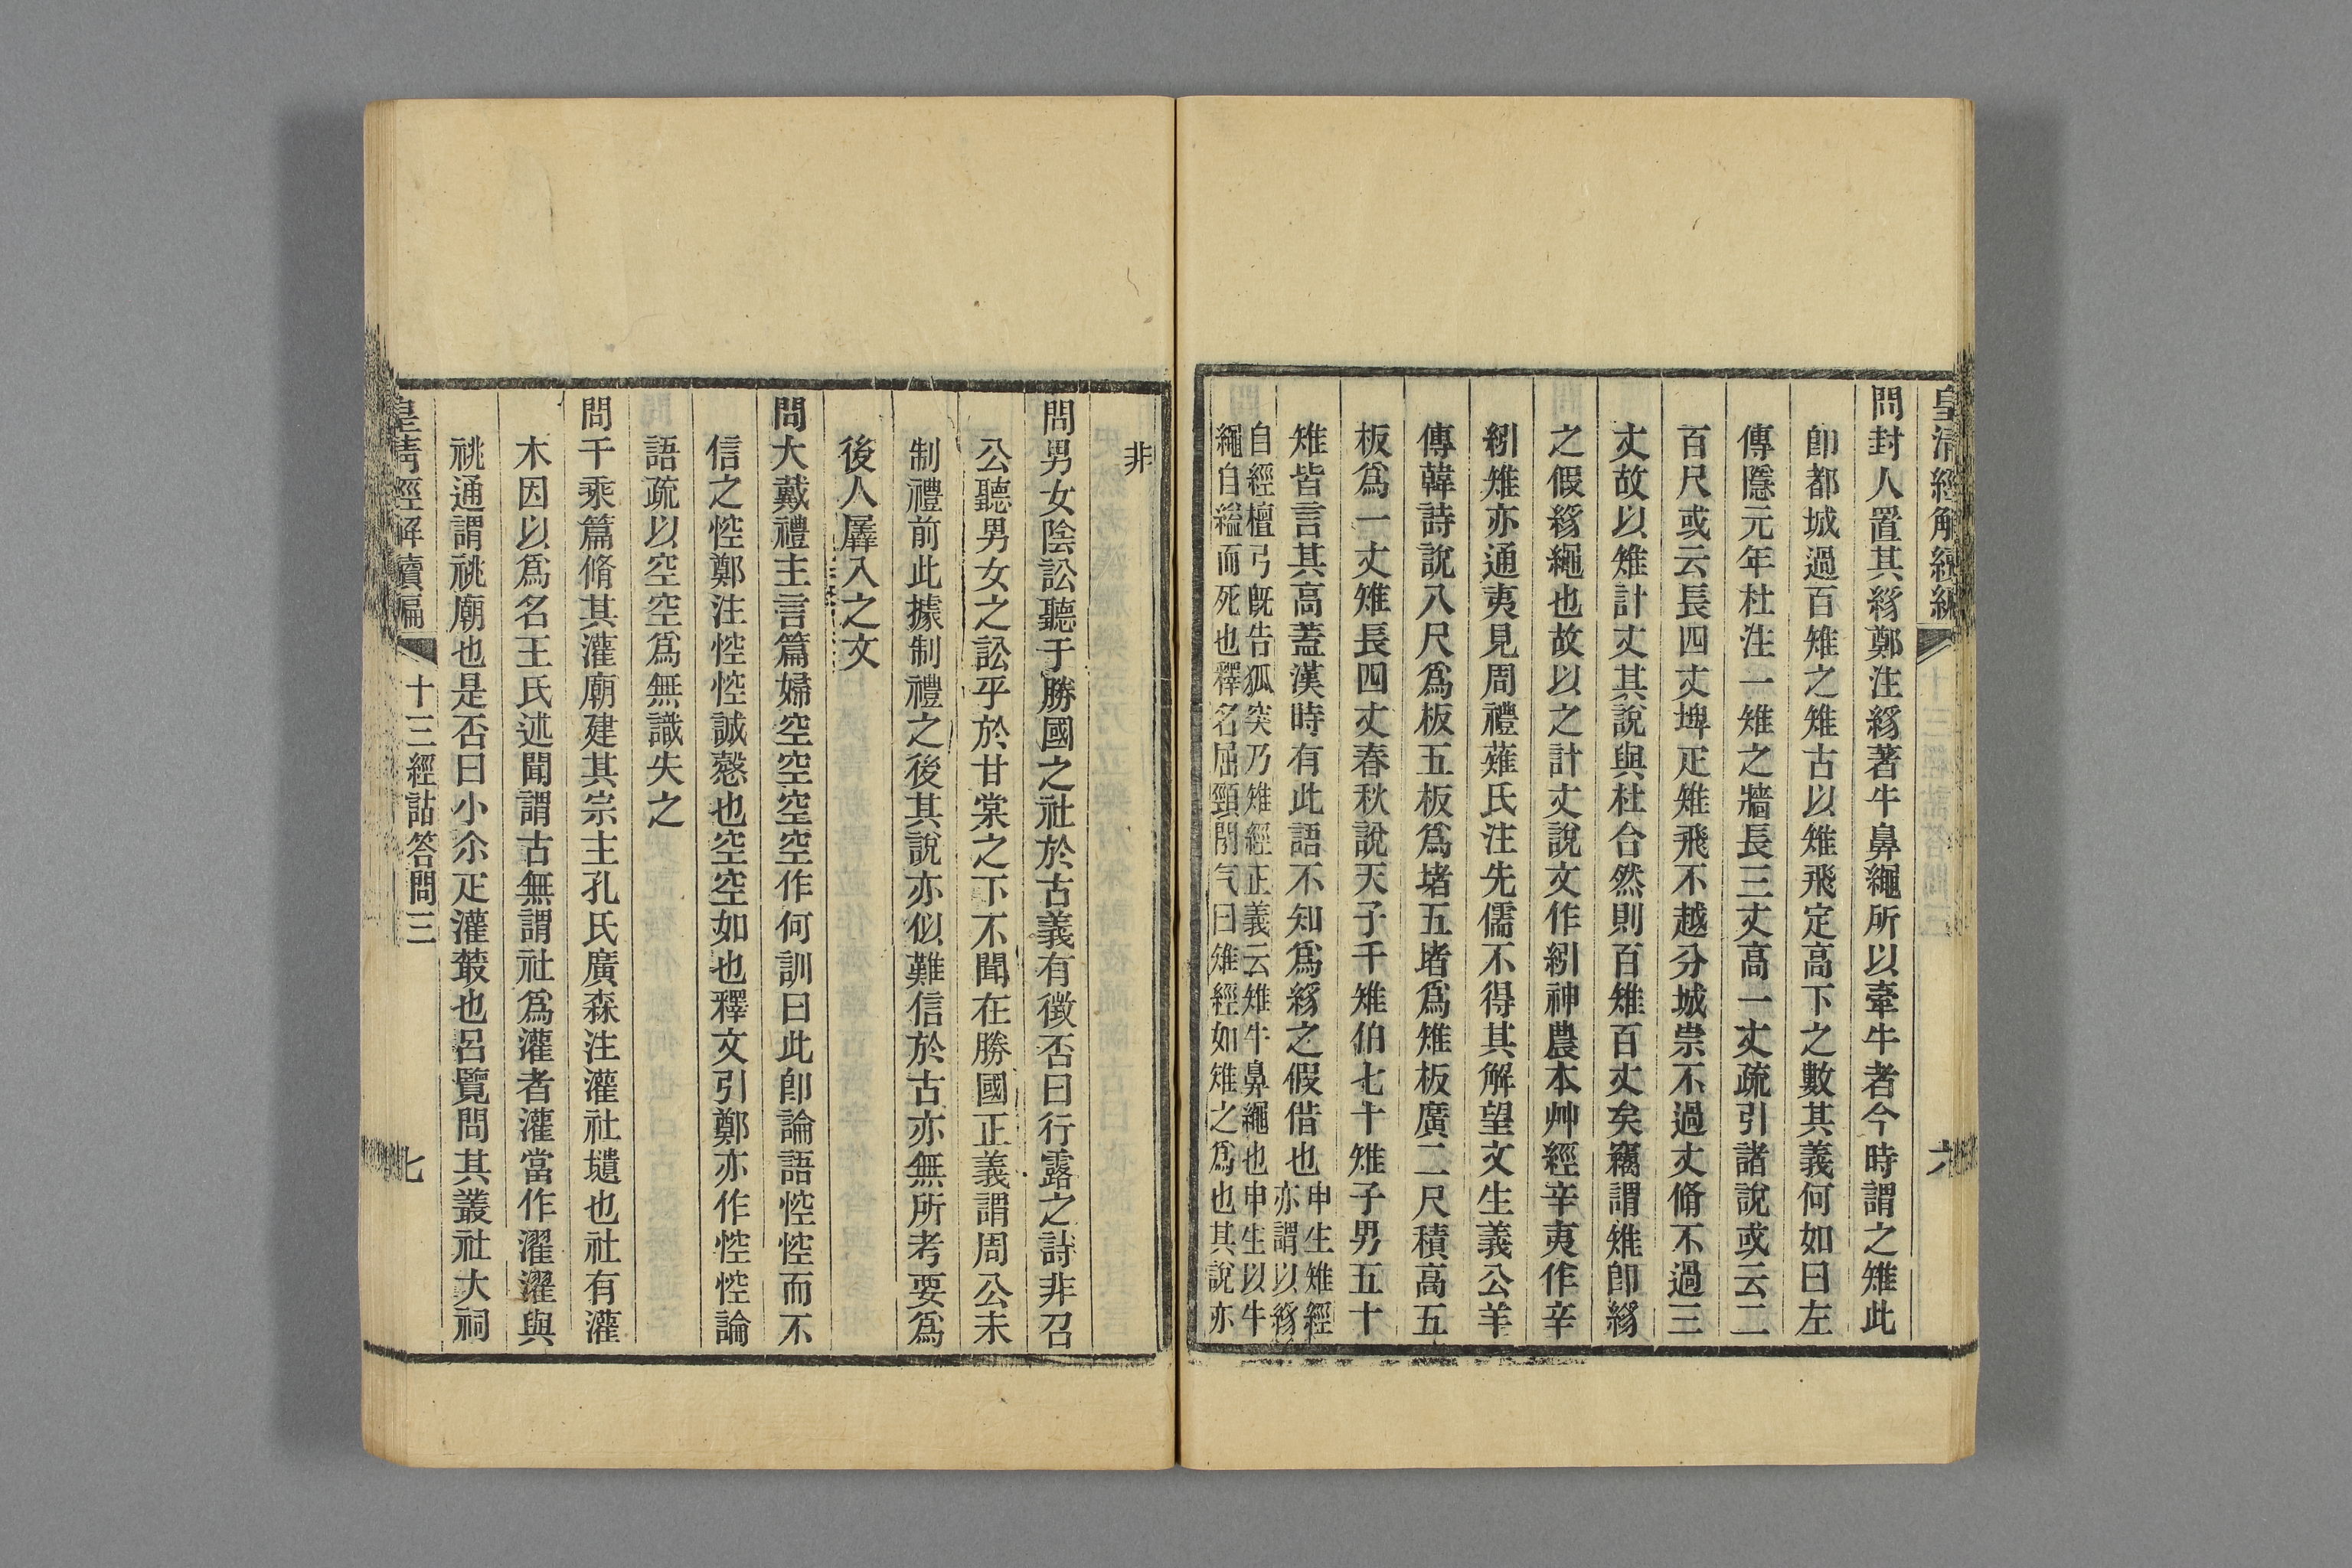 皇清經解續編
六
問封人置其絼鄭注絼著牛鼻繩所以牽牛者今時謂之雉此
卽都城過百雉之雉古以雉飛定高下之數其義何如曰左
傳隱元年杜注一雉之牆長三丈高一丈疏引諸說或云二
百尺或云長四丈埤疋雉飛不越分城崇不過丈脩不過三
丈故以雉計丈其說與杜合然則百雉百丈矣竊謂雉卽絼
之假絼繩也故以之計丈說文作紖神農本艸經辛夷作辛
紖雉亦通夷見周禮薙氏注先儒不得其解望文生義公羊
傳韓詩說八尺爲板五板爲堵五堵爲雉板廣二尺積高五
板爲一丈雉長四丈春秋說天子千雉伯七十雉子男五十
雉皆言其高蓋漢時有此語不知爲絼之假借也申生雉經亦謂以絼
自經檀弓旣告狐突乃雉經正義云雉牛鼻繩也申生以牛
繩自縊而死也釋名屈頸閉气曰雉經如雉之爲也其說亦
非
問男女陰訟聽于勝國之社於古義有徵否曰行露之詩非召
公聽男女之訟乎於甘棠之下不聞在勝國正義謂周公未
制禮前此據制禮之後其說亦似難信於古亦無所考要爲
後人羼入之文
問大戴禮主言篇婦空空空空作何訓曰此卽論語悾悾而不
信之悾鄭注悾悾誠愨也空空如也釋文引鄭亦作悾悾論
語疏以空空爲無識失之
問千乘篇脩其灌廟建其宗主孔氏廣森注灌社壝也社有灌
木因以爲名王氏述聞謂古無謂社爲灌者灌當作濯濯與
祧通謂祧廟也是否曰小尒疋灌叢也呂覽問其叢社大祠
皇清經解續編
十三經詁答問三
七